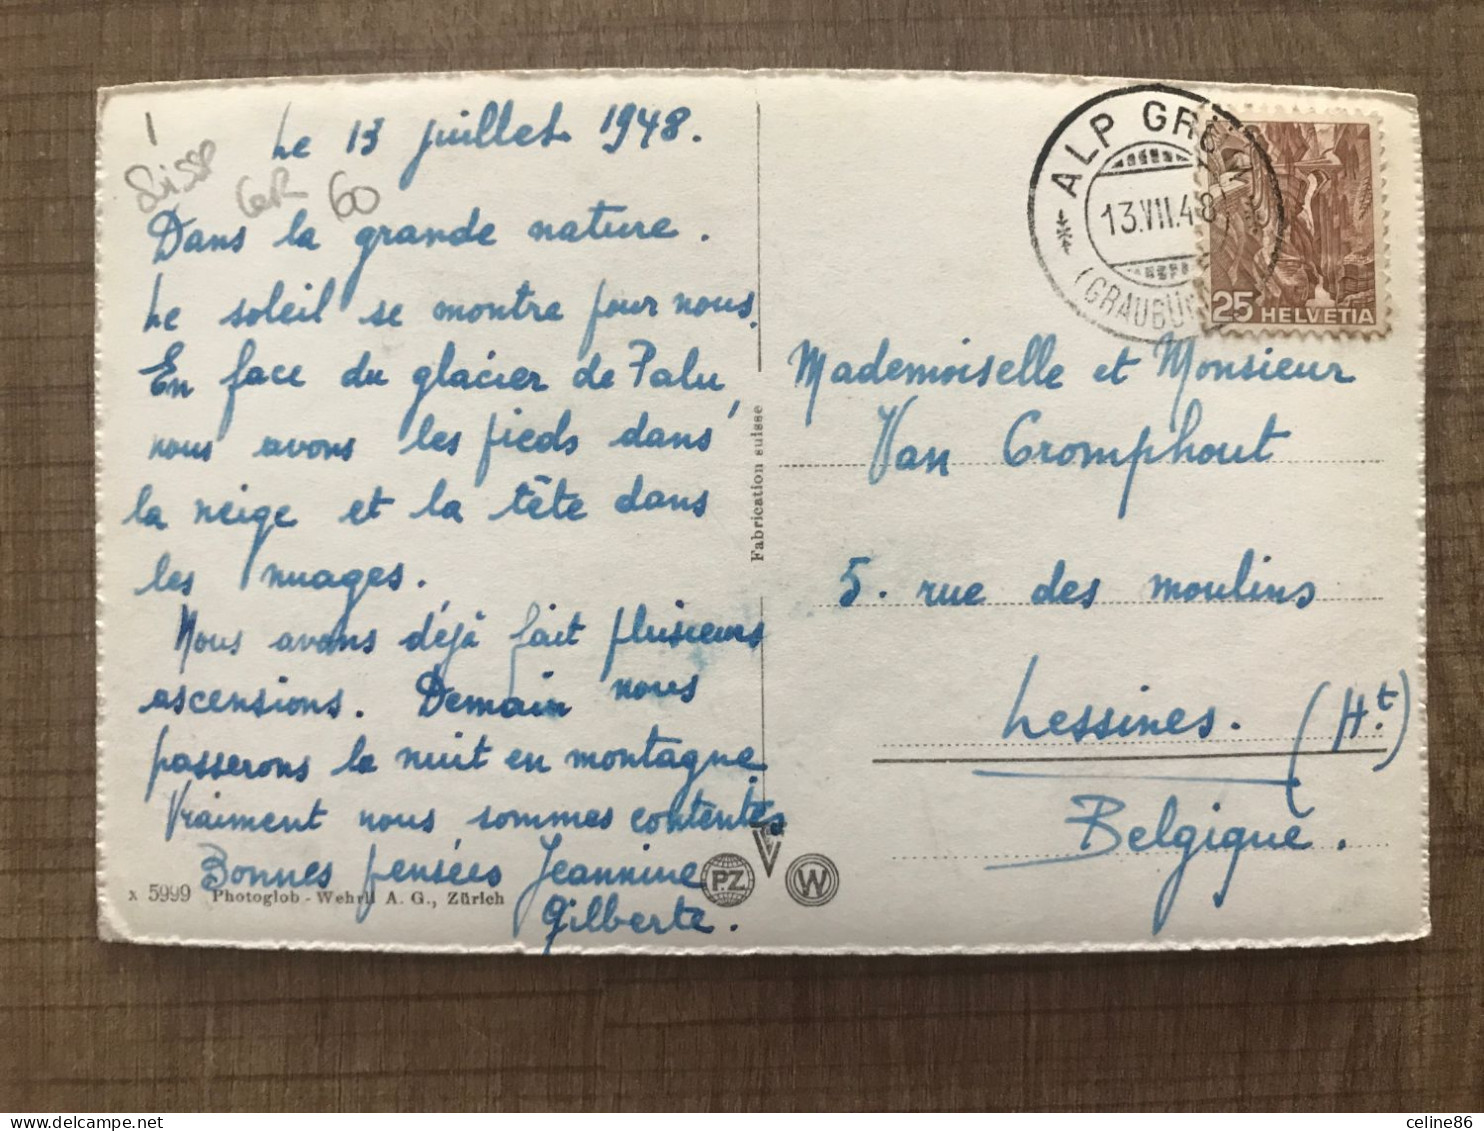 Le 13 juillet 1948.
Suisse
GR 60
Dans la grande nature.
Le soleil se montre pour nous.
En face du glacier de Palu,
nous avons les pieds dans
la neige et la tête dans
les nuages.
Nous avons déjà fait plusieurs
ascensions. Demain nous
passerons la nuit en montagne
Vraiment nous sommes contentes
Bonnes pensées Jeannine
Gilberte.
x 5999 Photoglob - Wehrli A. G., Zürich
Fabrication suisse
PZ
W
ALP GRÜM
13.VII.48
(GRAUBÜ
25 HELVETIA
Mademoiselle et Monsieur
Van Cromphout
5. rue des moulins
Lessines. (Ht.)
Belgique.
celine86